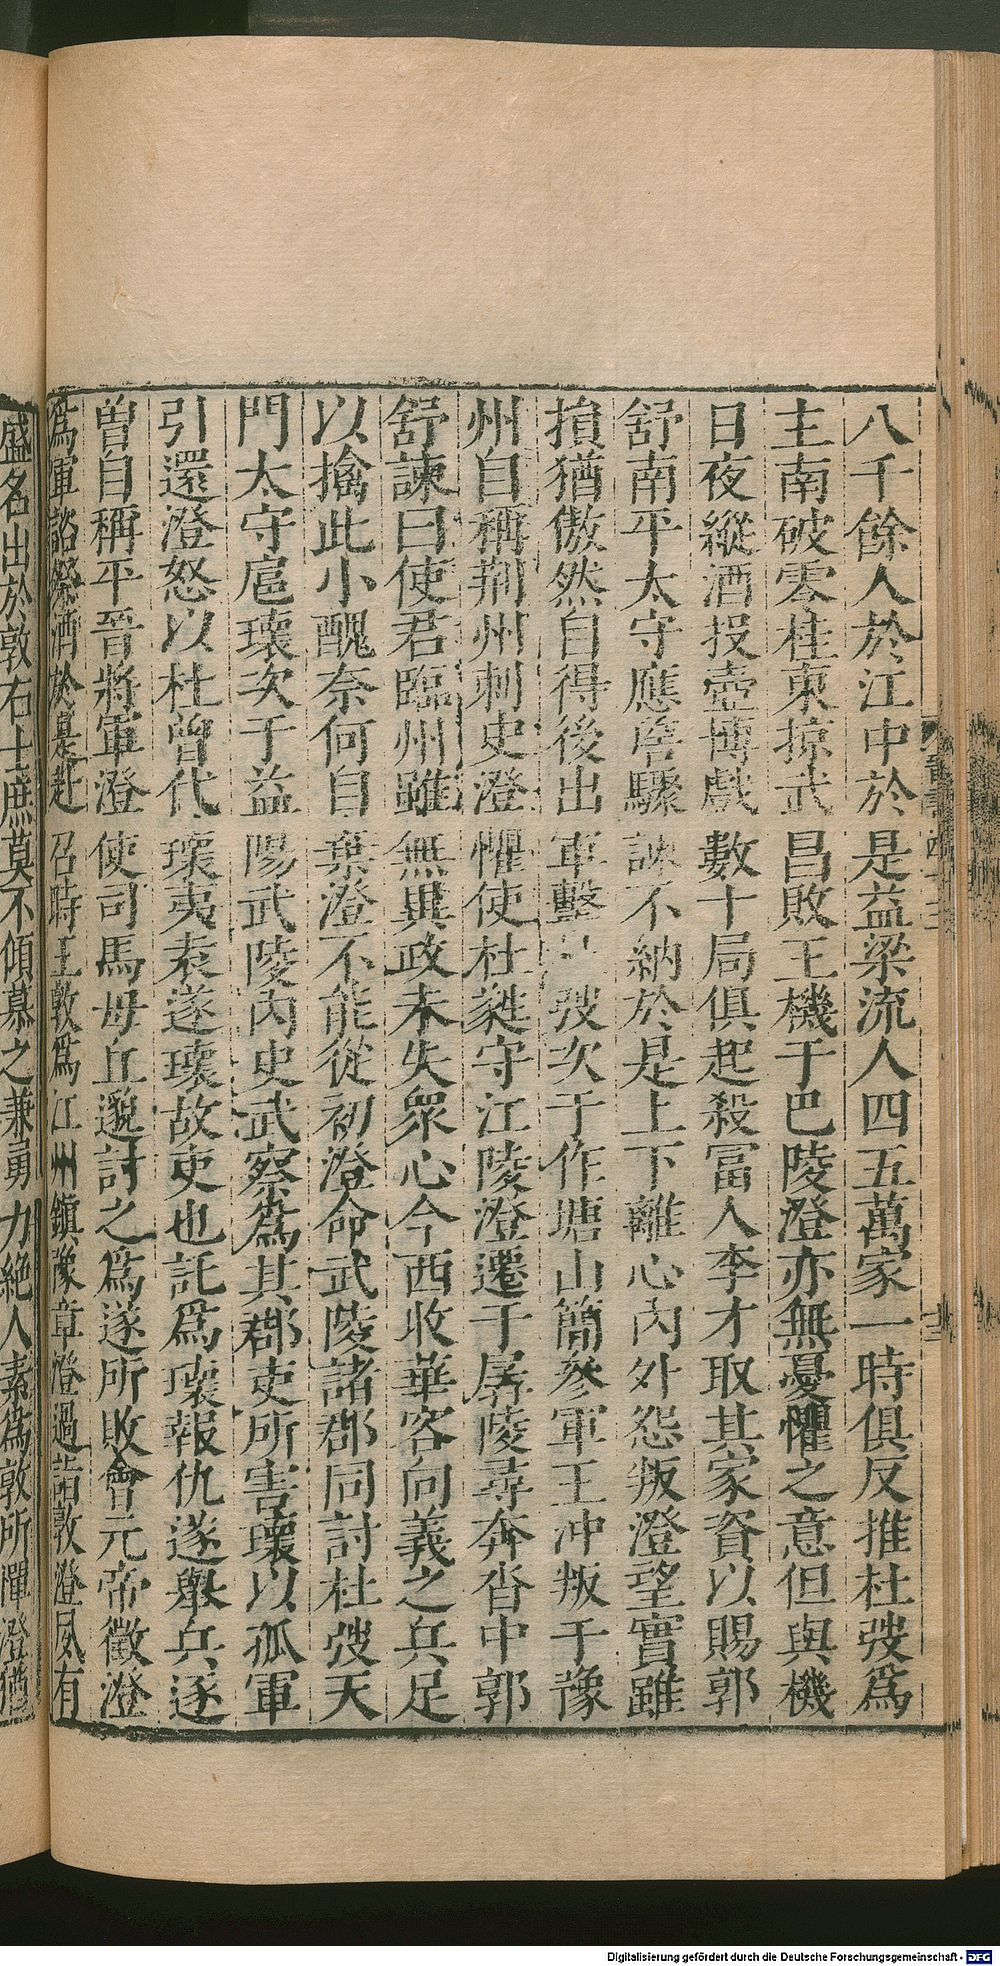 八千餘人於江中於是益梁流人四五萬家一時俱反推杜弢爲
主南破零桂東掠武昌敗王機于巴陵澄亦無憂懼之意但與機
日夜縱酒投壺博戲數十局俱起殺冨人李才取其家資以賜郭
舒南平太守應詹驟諫不納於是上下離心內外怨叛澄望實雖
損猶傲然自得後出軍擊弢次于作塘山簡參軍王冲叛于豫
州自稱荆州刺史澄懼使杜蕤守江陵澄遷于孱陵尋奔沓中郭
舒諫曰使君臨州雖無異政未失衆心今西收華容向義之兵足
以擒此小醜奈何自棄澄不能從初澄命武陵諸郡同討杜弢天
門太守扈瓌次于益陽武陵內史武察爲其郡吏所害瓌以孤軍
引還澄怒以杜曾代瓌夷袁遂瓌故吏也託爲瓌報仇遂舉兵逐
曾自稱平晉將軍澄使司馬毋丘邈討之爲遂所敗會元帝徵澄
爲軍諮祭酒於是赴召時王敦爲江州鎭豫章澄過詣敦澄夙有
盛名出於敦右士庶莫不傾慕之兼勇力絶人素爲敦所憚澄猶
Digitalisierung gefördert durch die Deutsche Forschungsgemeinschaft - DFG